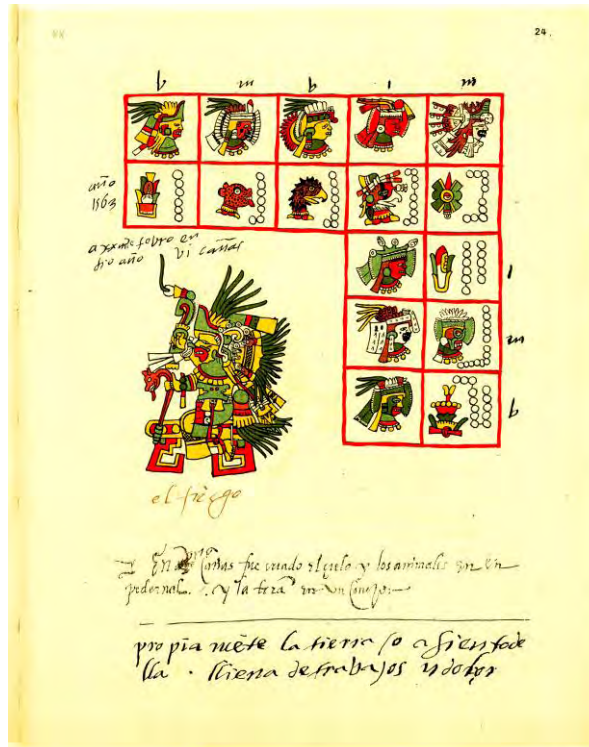 24.
b m b i m
año
1563
a xx de febro en
dho año vi cañas
i
m
b
el fuego
En cañas fue criado el cielo y los animales en un
pedernal. y la tierra en un Conejo.
propia mēte la tierra / o asiento de
lla . lliena de trabajos y dolor